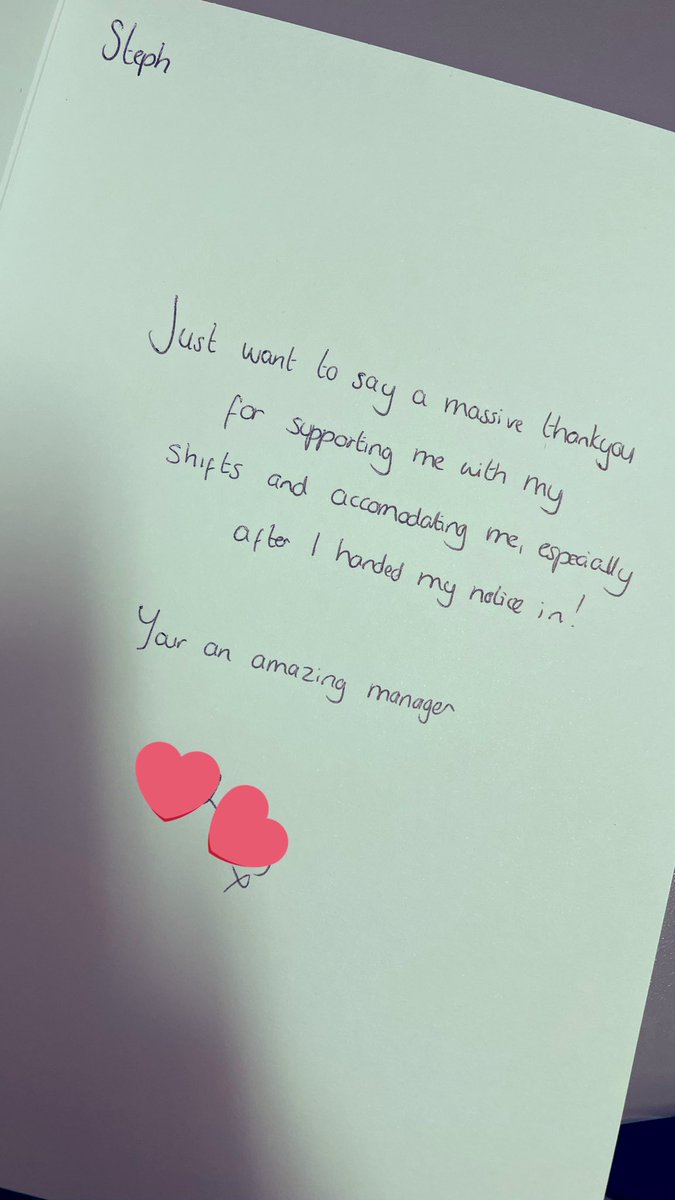 Steph
Just want to say a massive thankyou
for supporting me with my
shifts and accomodating me, especially
after I handed my notice in!
Your an amazing manager
x